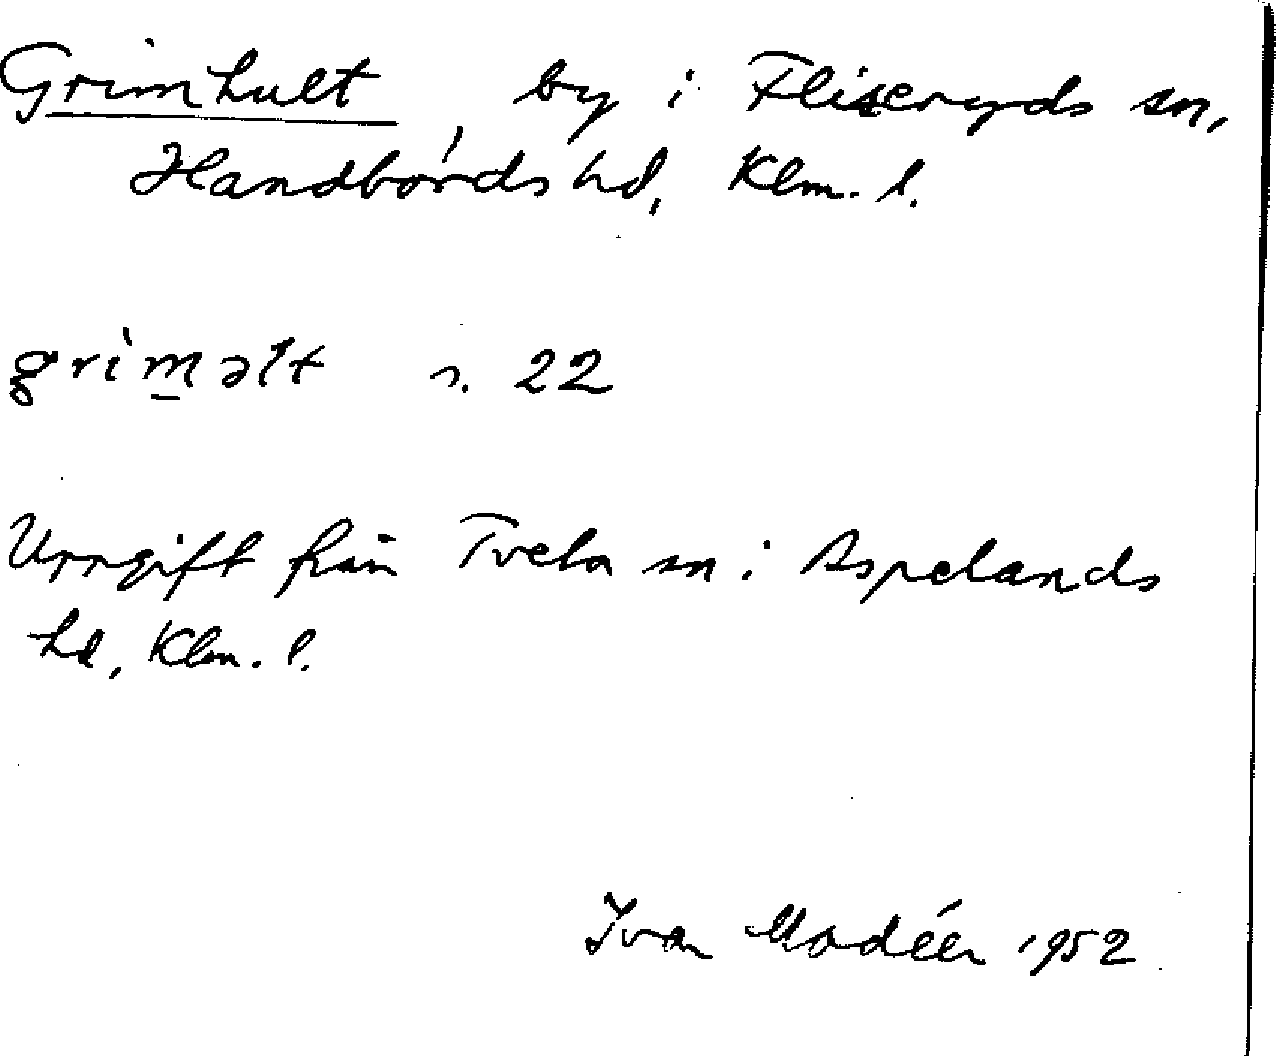 Grimhult, by i Fliseryds sn,
Handbörds hd, Klm. l.
grìm̲əlt s. 22
Uppgift från Tveta sn i Aspelands
hd, Klm. l.
Ivar Modéer 1952